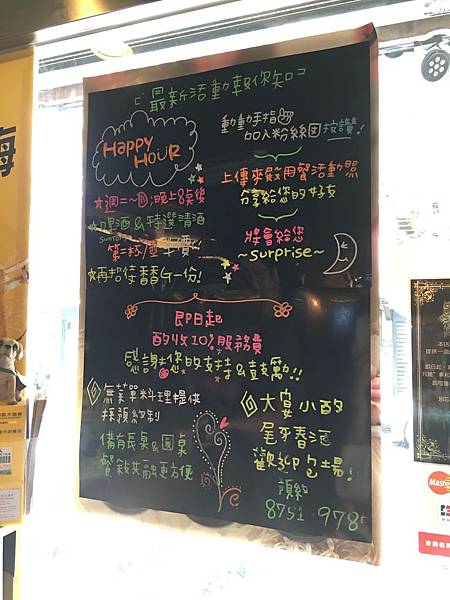 最新活動報你知
Happy
HOUR
動動手指
加入粉絲團按讚!
★週二~四晚上8點後
★啤酒&特選清酒
第二杯/壺半價!
★再招待香香G一份!
上傳來殿用餐活動照
分享給您的好友
將會給您
~surprise~
即日起
酌收10%服務費
感謝您的支持&鼓勵!!
無菜單料理提供
採預約制
備有長桌&圓桌
餐敘共融更方便
大宴小酌
尾牙春酒
歡迎包場!
預約
8751-978
Master